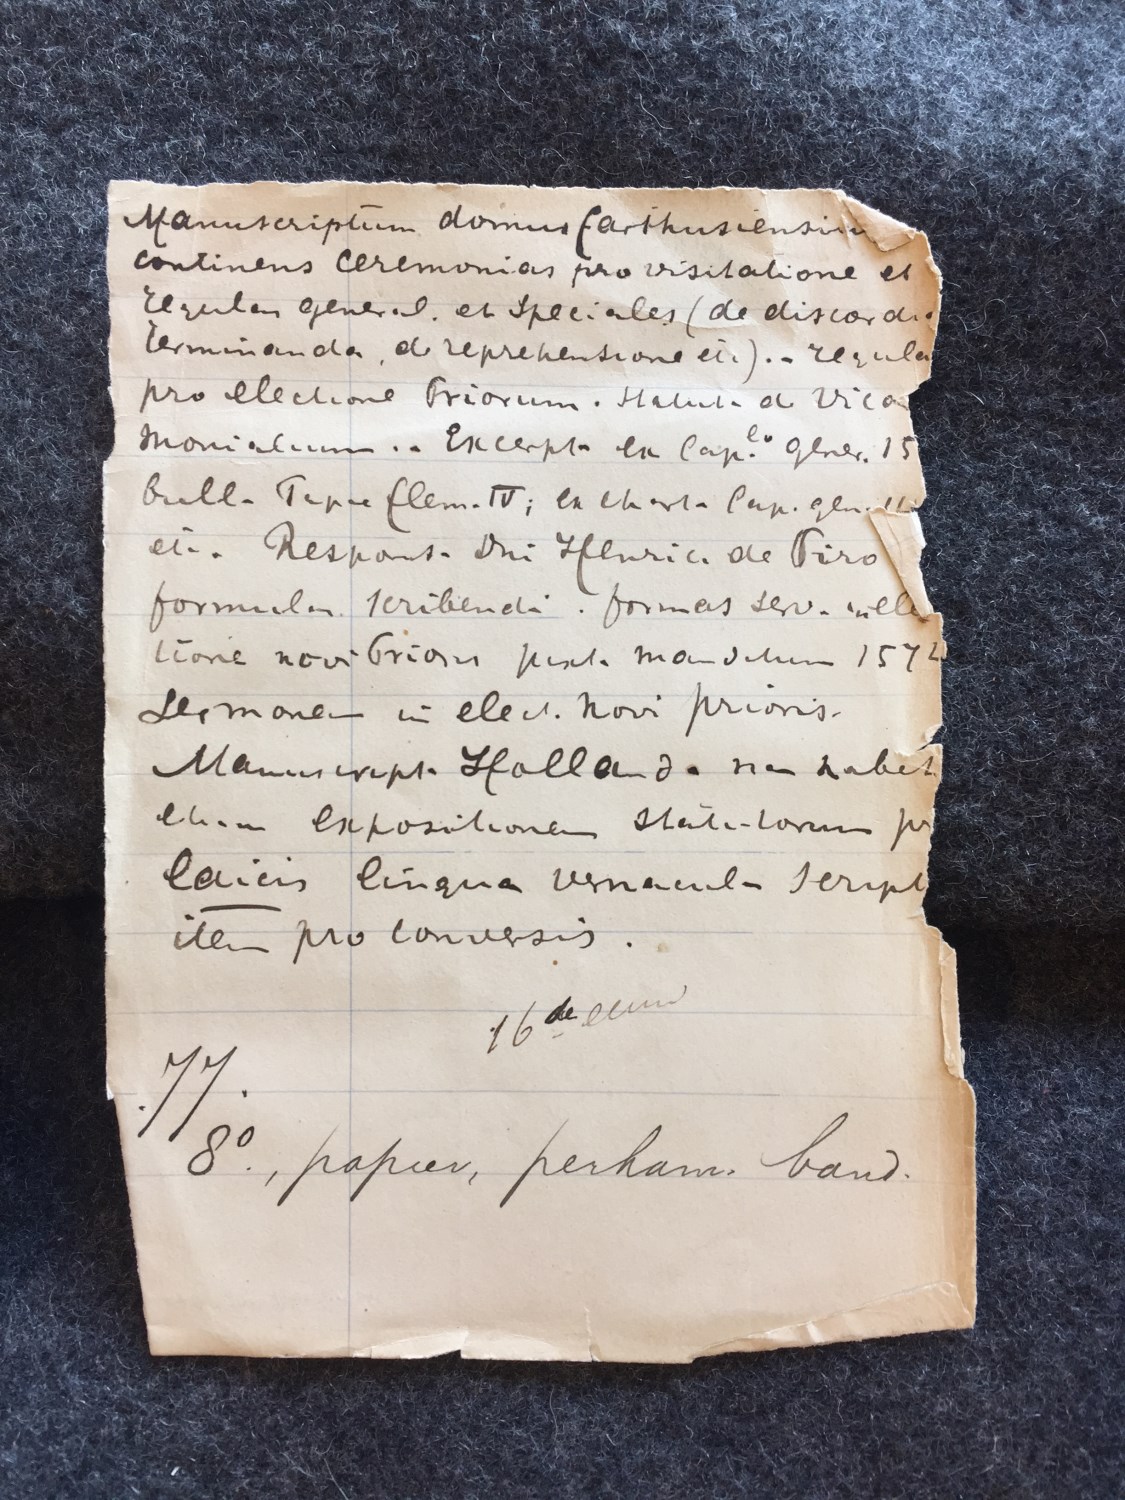 Manuscriptum domus Carthusiensiu
continens ceremonias pro visitatione et
regulas general. et speciales (de discordi
terminanda, de reprehensione etc). - regula
pro electione Priorum. Statuta de Vica
monialium. - Excerpta ex Cap.lo gener. 15
bulla Papae Clem. IV; ex charta Cap. gen.
etc. Responsa Dni Henrici de Piro
formulas scribendi. formas serv. in elec
tione novi Prioris juxta mandatum 1572
Sermonem in elect. novi prioris.
Manuscripta Hollanda habet
etiam expositionem statutorum pr
laicis lingua vernacula script
item pro conversis.
16de eeuw
77.
8o., papier, perkam. band.